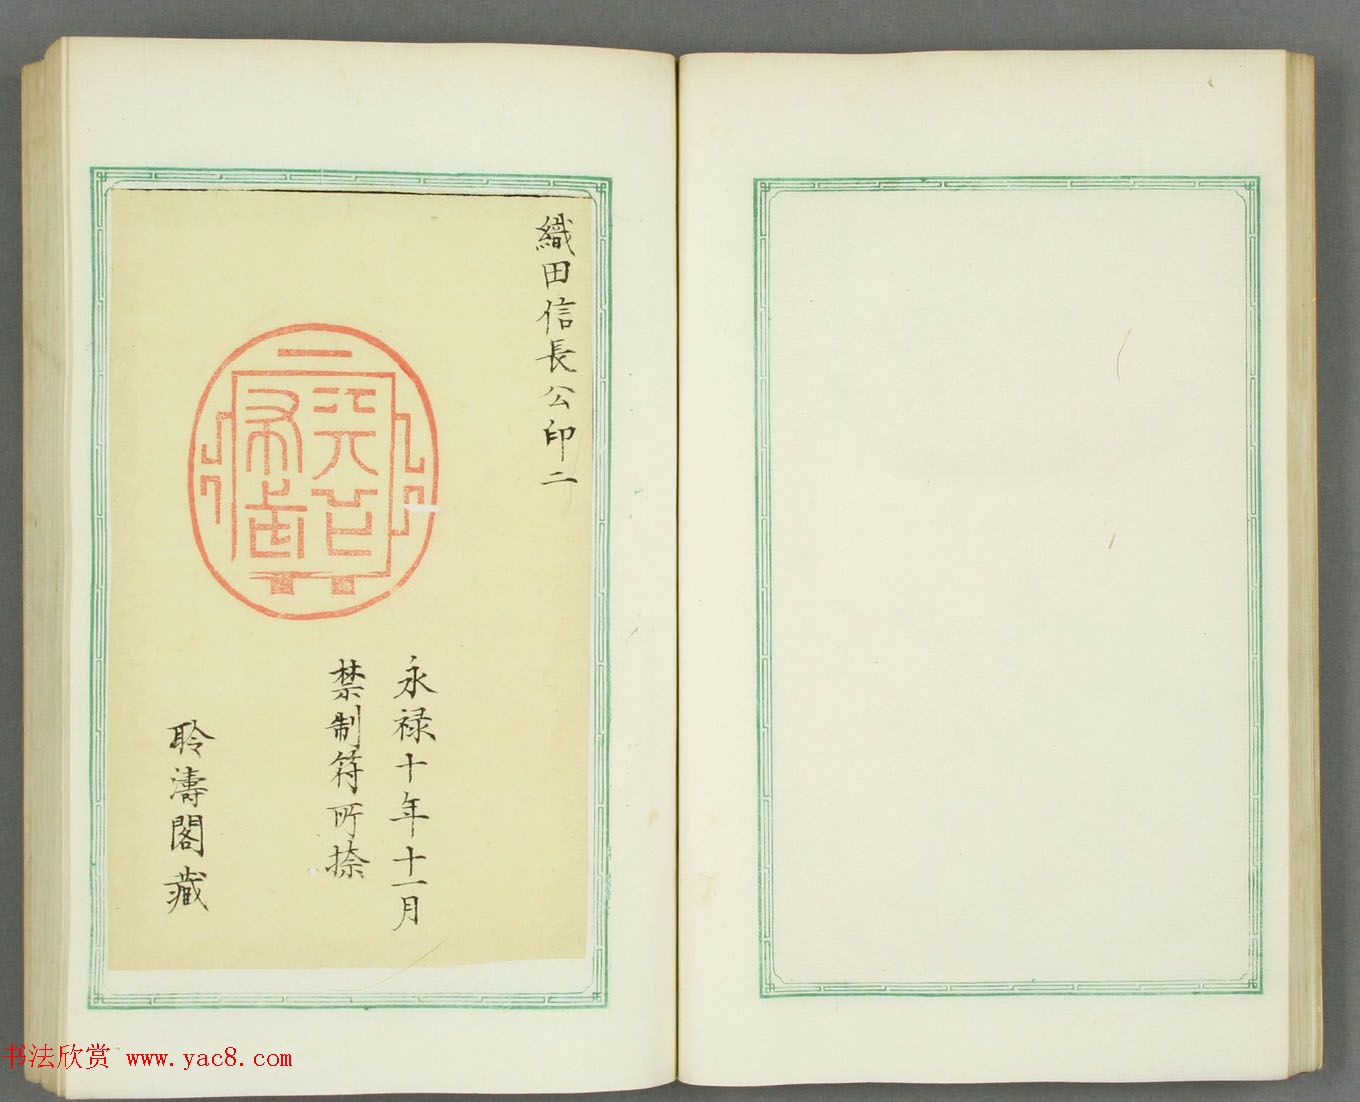 織田信長公印二
永禄十年十一月
禁制符所捺
聆濤閣藏
书法欣赏 www.yac8.com